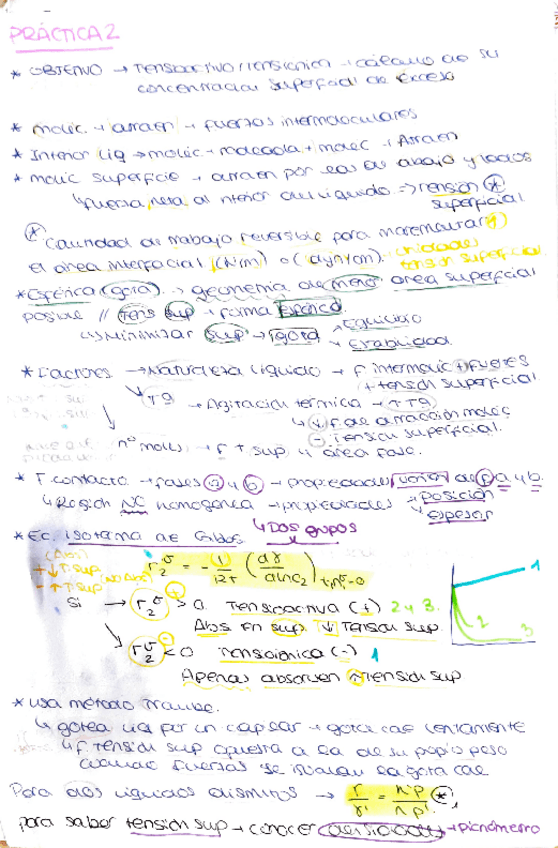 PRÁCTICA 2
* OBJETIVO → Tensoactivo/tensionico → cálculo de su
concentración superficial de exceso
* molec. → atraen → fuerzas intermoleculares
* Interior liq → molec. → rodeada + molec → Atraen
* molic superficie → atraen por las de abajo y lados
↳ fuerza neta al interior del líquido => tensión *
superficial
* Cantidad de trabajo reversible para incrementar
el área interfacial (N/m) o (dyn/cm). unidades
tensión superficial
* Esférica (gota). → geometría de menor área superficial
posible // tens sup → forma esférica.
↳ Minimizar sup → gota → Equilibrio
→ Estabilidad.
* Factores → Naturaleza líquido → F intermolic + fuertes
+ tensión superficial
↳ Tª → Agitación térmica → ↑Tª
↳ ↓ F. de atracción molec
- Tensión superficial.
nº moles → F + sup área fase.
* F. contacto → fases a y b → propiedades varían de a a b.
↳ Región NO homogénea → propiedades → posición
→ espesor
* Ec. isoterma de Gibbs ↳ Dos grupos
Γ₂^σ = - 1/RT (dγ/dlnc₂) T, n₁^σ=0
Si → Γ₂^σ > 0 Tensoactiva (+) 2 y 3.
Abs en sup. ↓ Tensión sup.
↘ Γ₂^σ < 0 Tensoionica (-) 1
Apenas absorven ↑ tensión sup
1
2
3
* Usa método Traube.
↳ gotea liq por un capilar → gota cae lentamente
↳ F. tensión sup opuesta a la de su propio peso
cuando fuerzas se igualan la gota cae
Para dos líquidos distintos → γ/γ' = n'ρ/nρ' *,
para saber tensión sup → conocer densidad → picnómetro